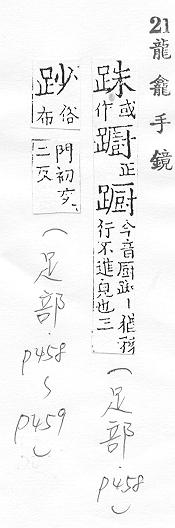 21龍龕手鏡
跦或作躕正蹰今音厨踟丨猶豫行不進皃也三
(足部.p458)
䟞俗布門初交二反
(足部.p458~p459)